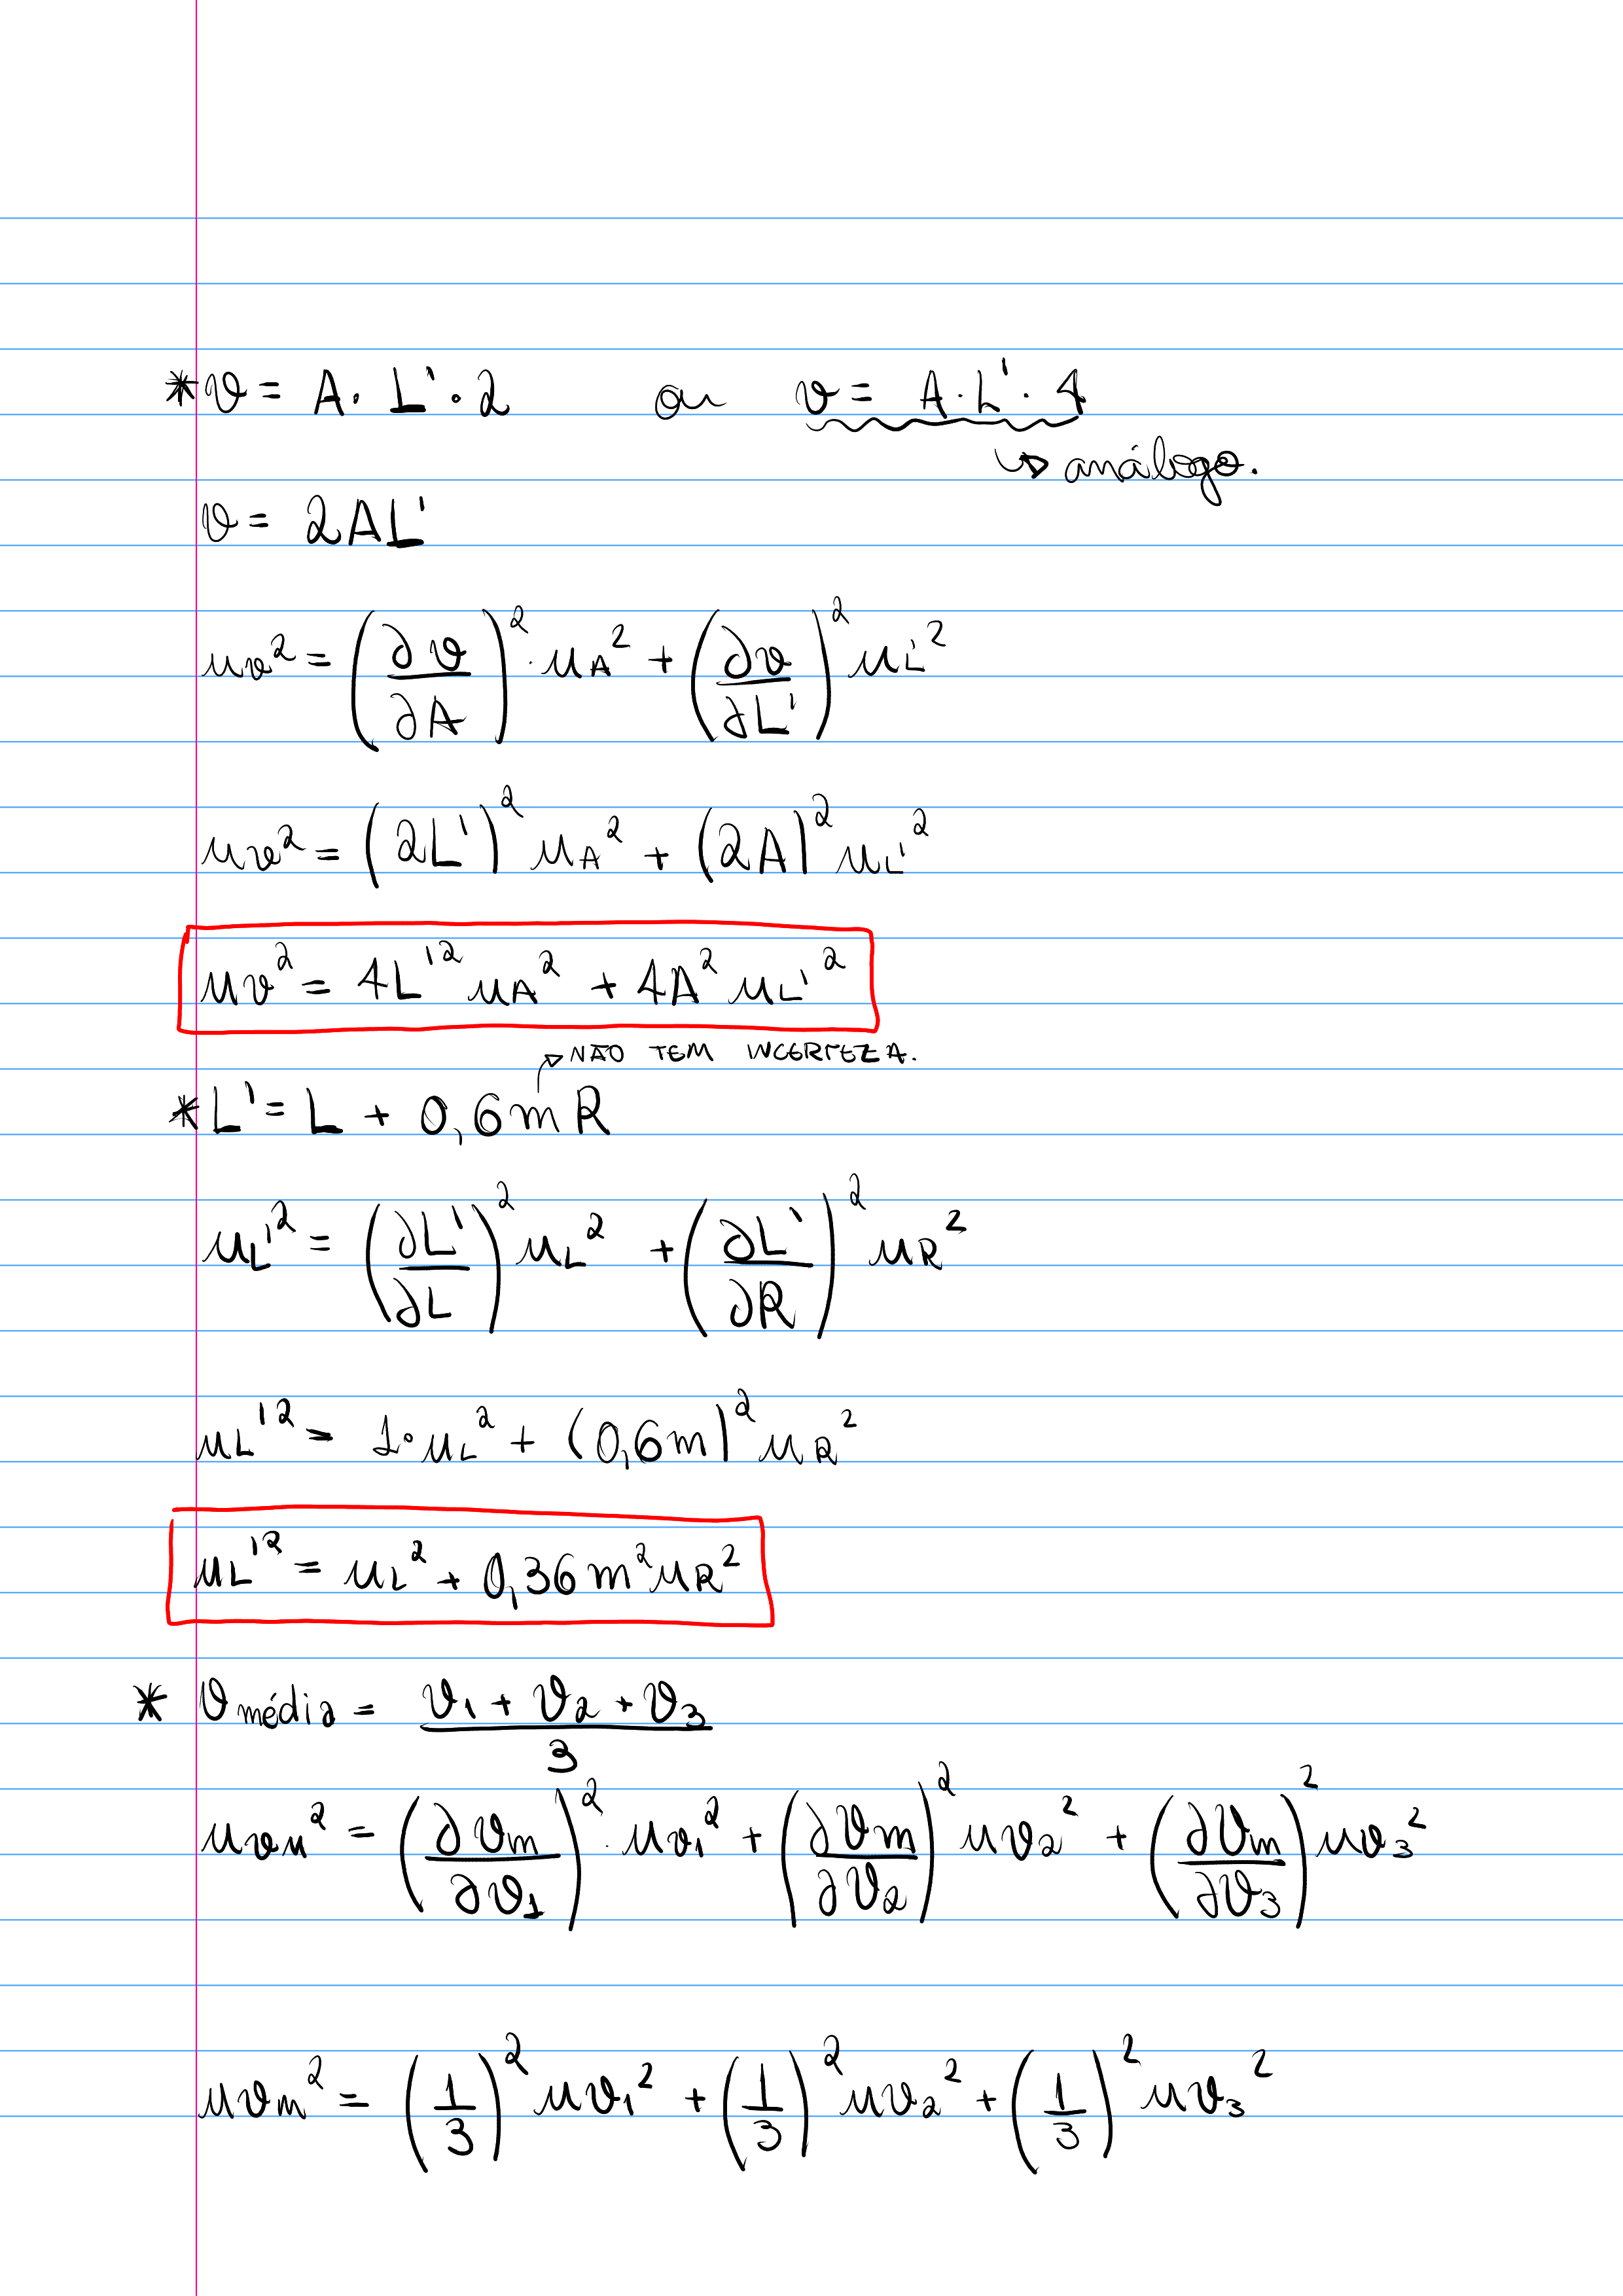 * v = A · L' · 2 ou v = A · L' · 4
↳ análogo.
v = 2AL'
uv² = (∂v/∂A)² · uA² + (∂v/∂L')² uL'²
uv² = (2L')² uA² + (2A)² uL'²
uv² = 4L'² uA² + 4A² uL'²
↱ NÃO TEM INCERTEZA.
* L' = L + 0,6mR
uL'² = (∂L'/∂L)² uL² + (∂L'/∂R)² uR²
uL'² = 1 · uL² + (0,6m)² uR²
uL'² = uL² + 0,36m² uR²
* vmédia = (v1 + v2 + v3)/3
uvM² = (∂vm/∂v1)² · uv1² + (∂vm/∂v2)² uv2² + (∂vm/∂v3)² uv3²
uvm² = (1/3)² uv1² + (1/3)² uv2² + (1/3)² uv3²